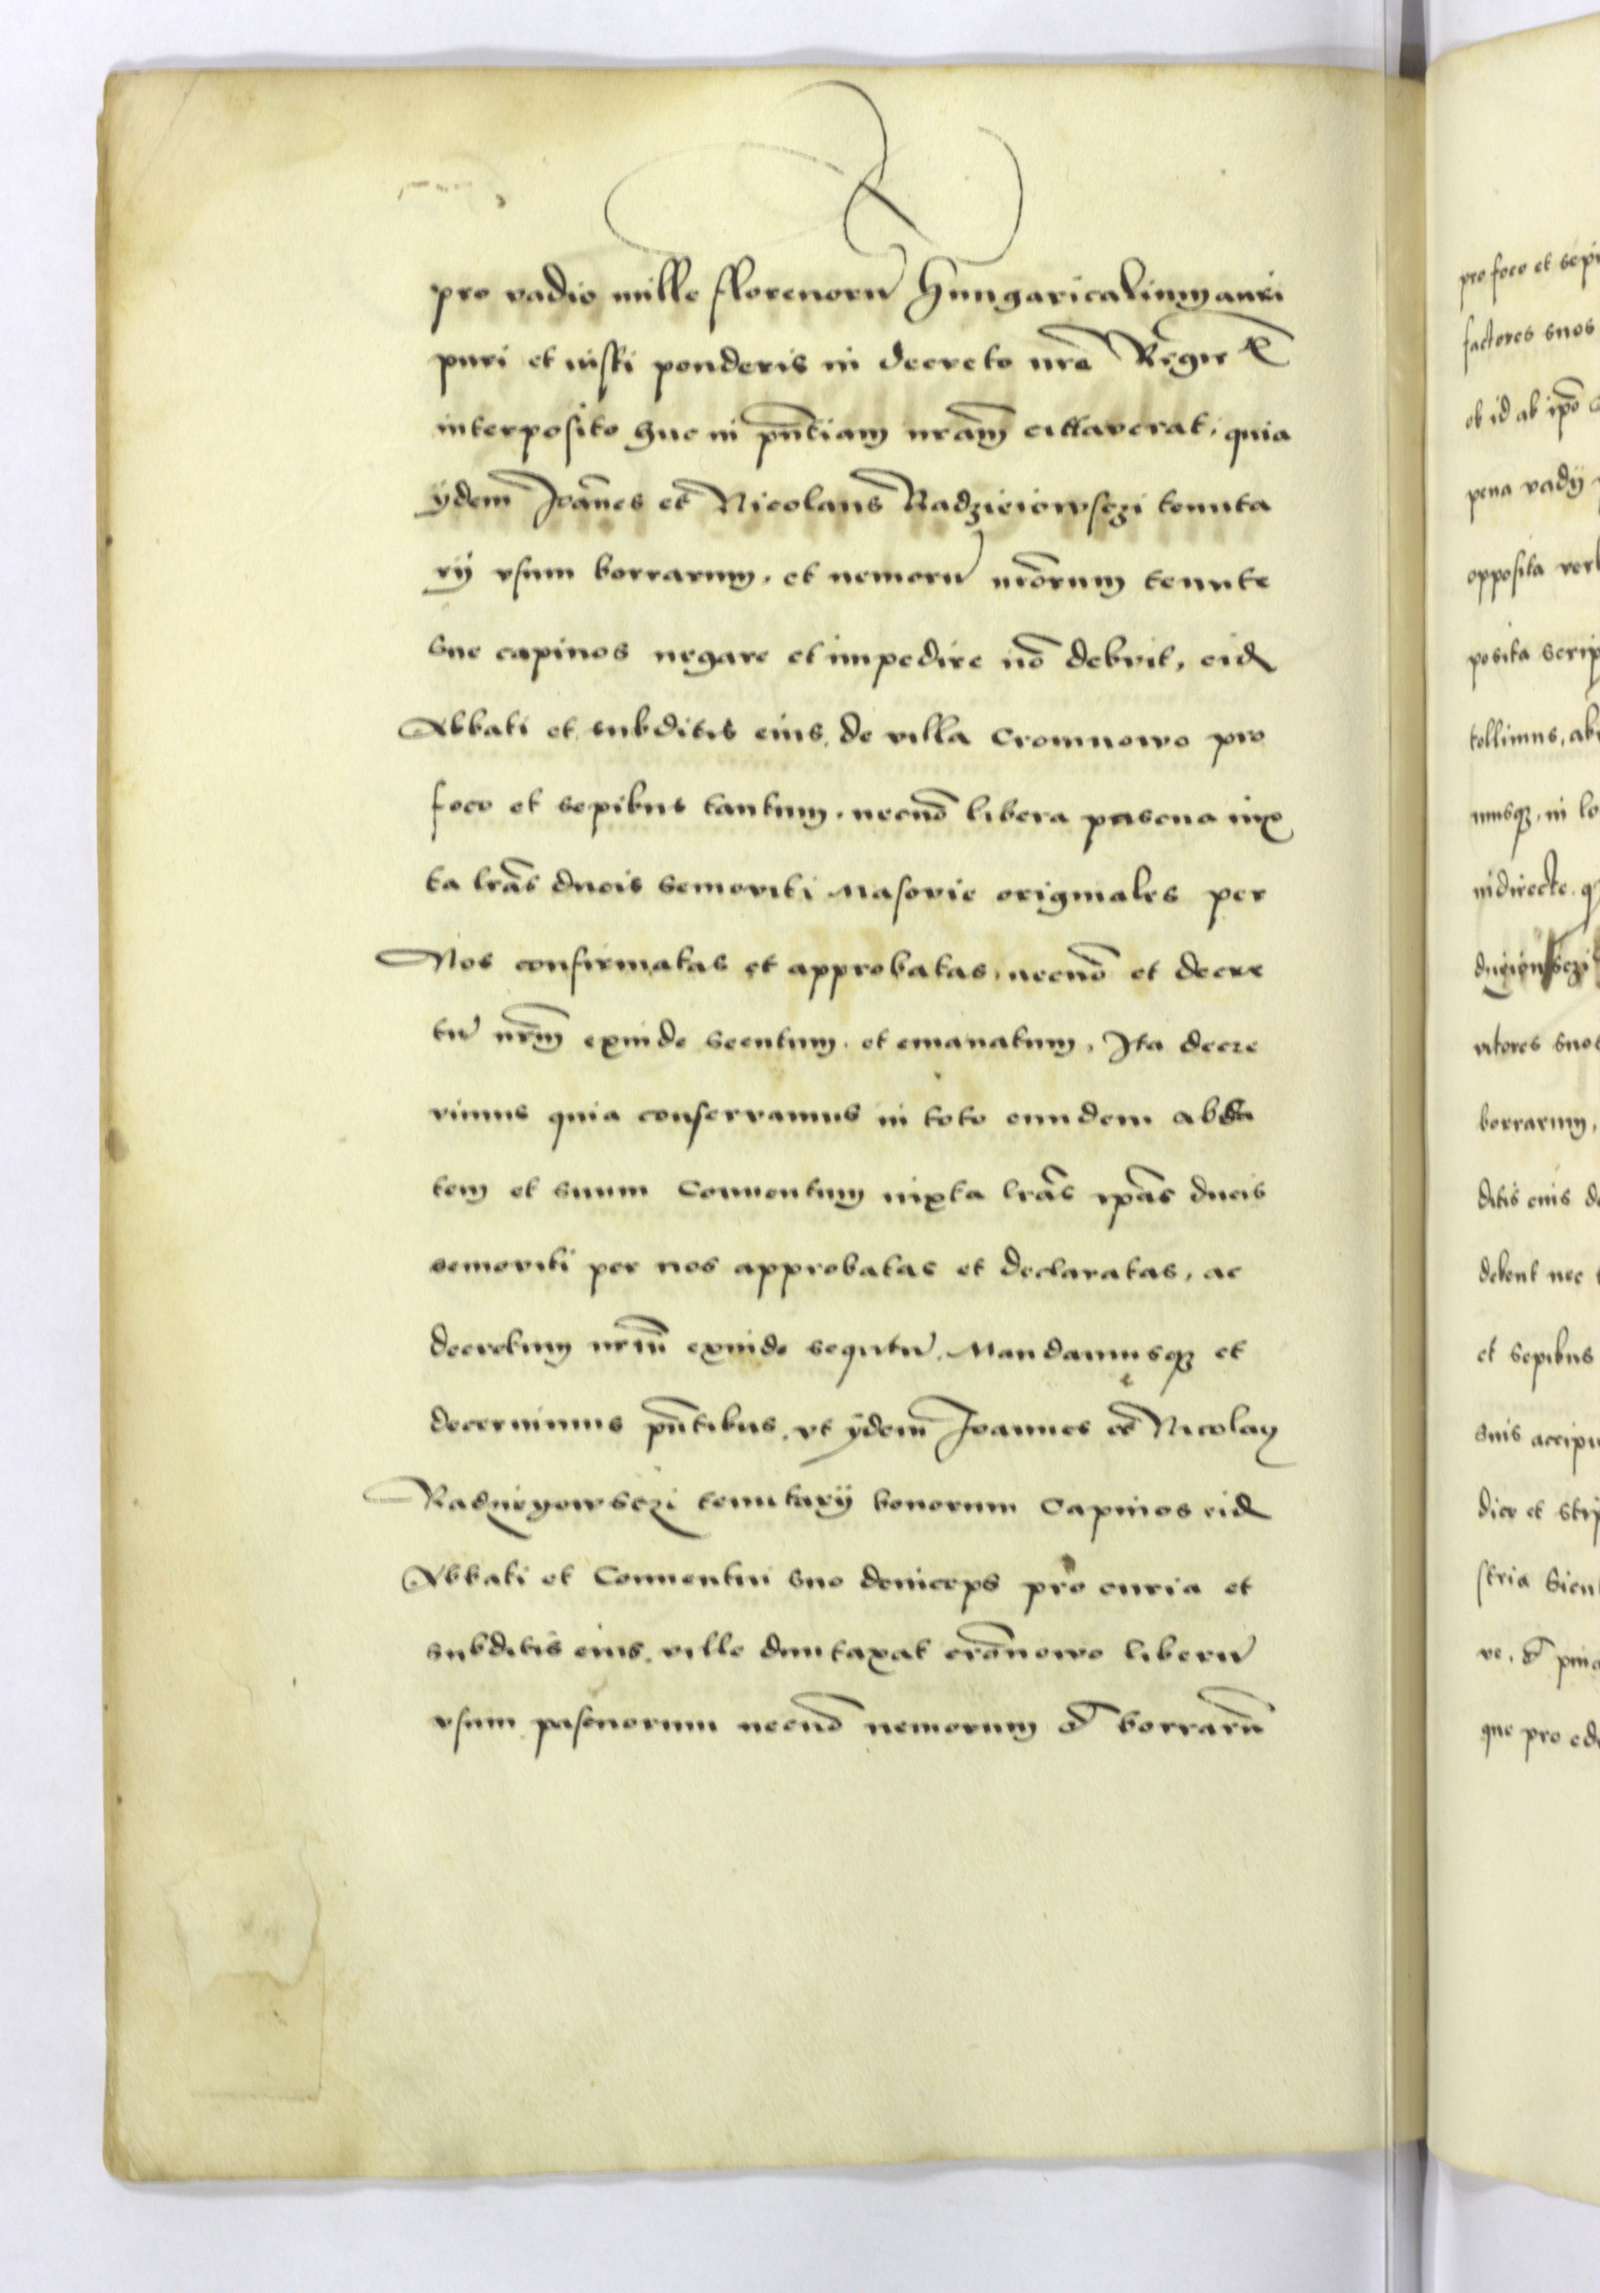 pro vadio mille florenorū Hungaricalium auri
puri et iusti ponderis in decreto nrō Regie
interposito huc in pn̄tiam nrām cittaverat, quia
ÿdem Joānes et Nicolaus Radzieiowsczi tenuta
rÿ vsum borrarum, et nemorū nrōrum tenute
sue capinos negare et impedire nō debuit, eid
Abbati et subditis eius, de villa Cromnowo pro
foco et sepibus tantum, necnō libera pascua iux
ta lrās ducis semoviti Masovie originales per
Nos confirmatas et approbatas, necnō et decre
tū nrm̄ exinde secutum, et emanatum, Ita decre
vimus quia conservamus in toto eundem abba
tem et suum Conuentum iuxta lrās ipās ducis
semoviti per nos approbatas et declaratas, ac
decretum nrūm exinde sequutū, Mandamusqz et
decernimus pn̄tibus, vt ÿdem Joannes et Nicolaus
Radzieyowsczi tenutarÿ bonorum Capinos eid
Abbati et Conuentui suo deinceps pro curia et
subditis eius, ville duntaxat crōnowo liberū
vsum pascuorum necnō nemorum et borrarū
pro foco et sepi
factores suos
ob id ab ipō
pena vadÿ
opposita verb
posita scrip
tollimus, ab
musqz, in lo
indirecte, q
vitores suos
borrarum,
ditis eius de
debent nec
et sepibus
suis accipi
dico et strip
stria sicut
ve, et pin
que pro ed